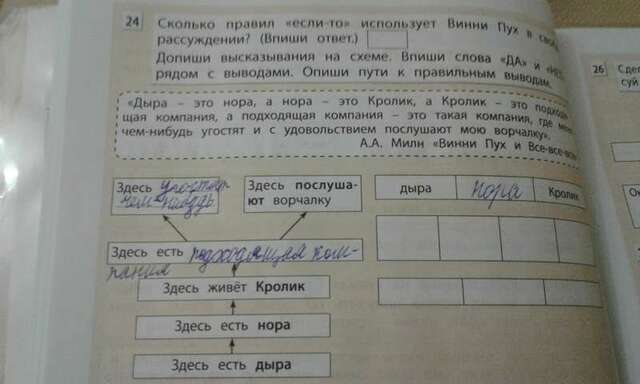 24
Сколько правил «если-то» использует Винни Пух в
рассуждении? (Впиши ответ.)
Допиши высказывания на схеме. Впиши слова «ДА» и
рядом с выводами. Опиши пути к правильным выводам.
«Дыра – это нора, а нора – это Кролик, а Кролик – это
щая компания, а подходящая компания – это такая компания, где
чем-нибудь угостят и с удовольствием послушают мою ворчалку».
А.А. Милн «Винни Пух и
Здесь угостят
чем-нибудь
Здесь послуша-
ют ворчалку
дыра нора Кролик
Здесь есть подходящая ком-
пания
Здесь живёт Кролик
Здесь есть нора
Здесь есть дыра
26